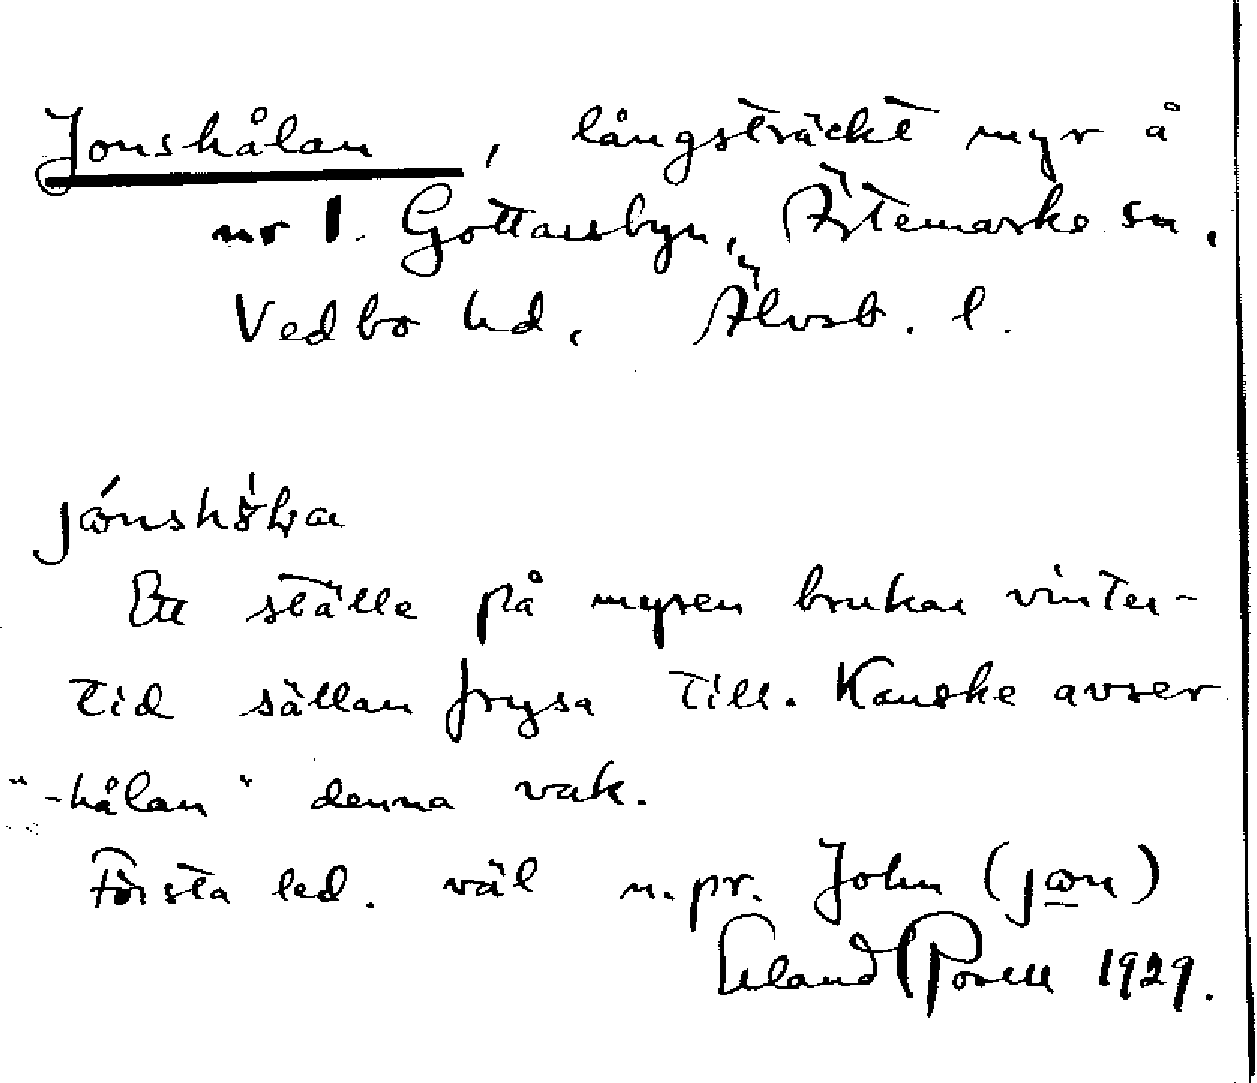 Jonshålan, långsträckt myr å
nr 1. Gottarsbyn, Ärtemarks sn,
Vedbo hd, Älvsb. l.
Ett ställe på myren brukar vinter-
tid sällan frysa till. Kanske avser
"-hålan" denna vak.
Första led. väl n.pr. John (jɷn)
Erland Rosell 1929.